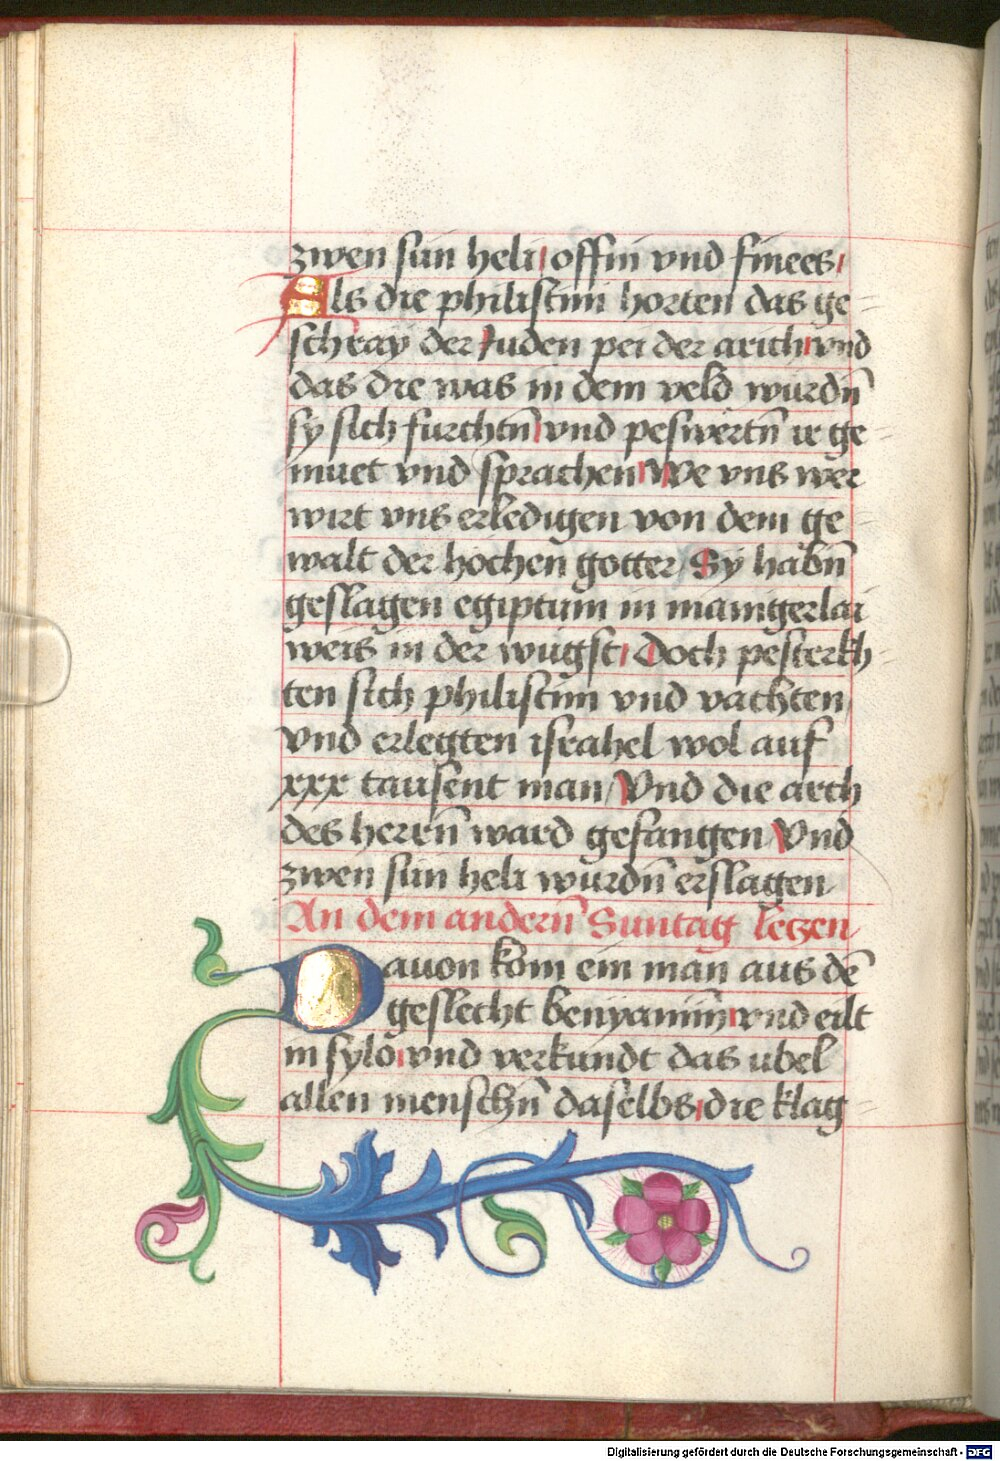 zwen sün heli offin vnd finees
Als die philistim horten das ge=
schray der Juden pei der arich vnd
das die was in dem veld wurdn̄
sy sich furchtn̄ vnd peswertn̄ ir ge=
muet vnd sprachen We vns wer
wirt vns erledigen von dem ge=
walt der hochen gotter Sy habn̄
geslagen egiptum in manigerlai
weis in der wugst Doch pesterkh=
ten sich philistim vnd vachten
vnd erlegten israhel wol auf
xxx tausent man Vnd die arch
des herrn̄ ward gefangen Vnd
zwen sün heli wurdn̄ erslagen
An dem andern̄ Suntag leczen
Dauon kom ein man aus de᷑
geslecht benyamin̄ vnd eilt
in sylo vnd verkundt das ubel
allen menschn̄ daselbs die klag=
Digitalisierung gefördert durch die Deutsche Forschungsgemeinschaft - DFG